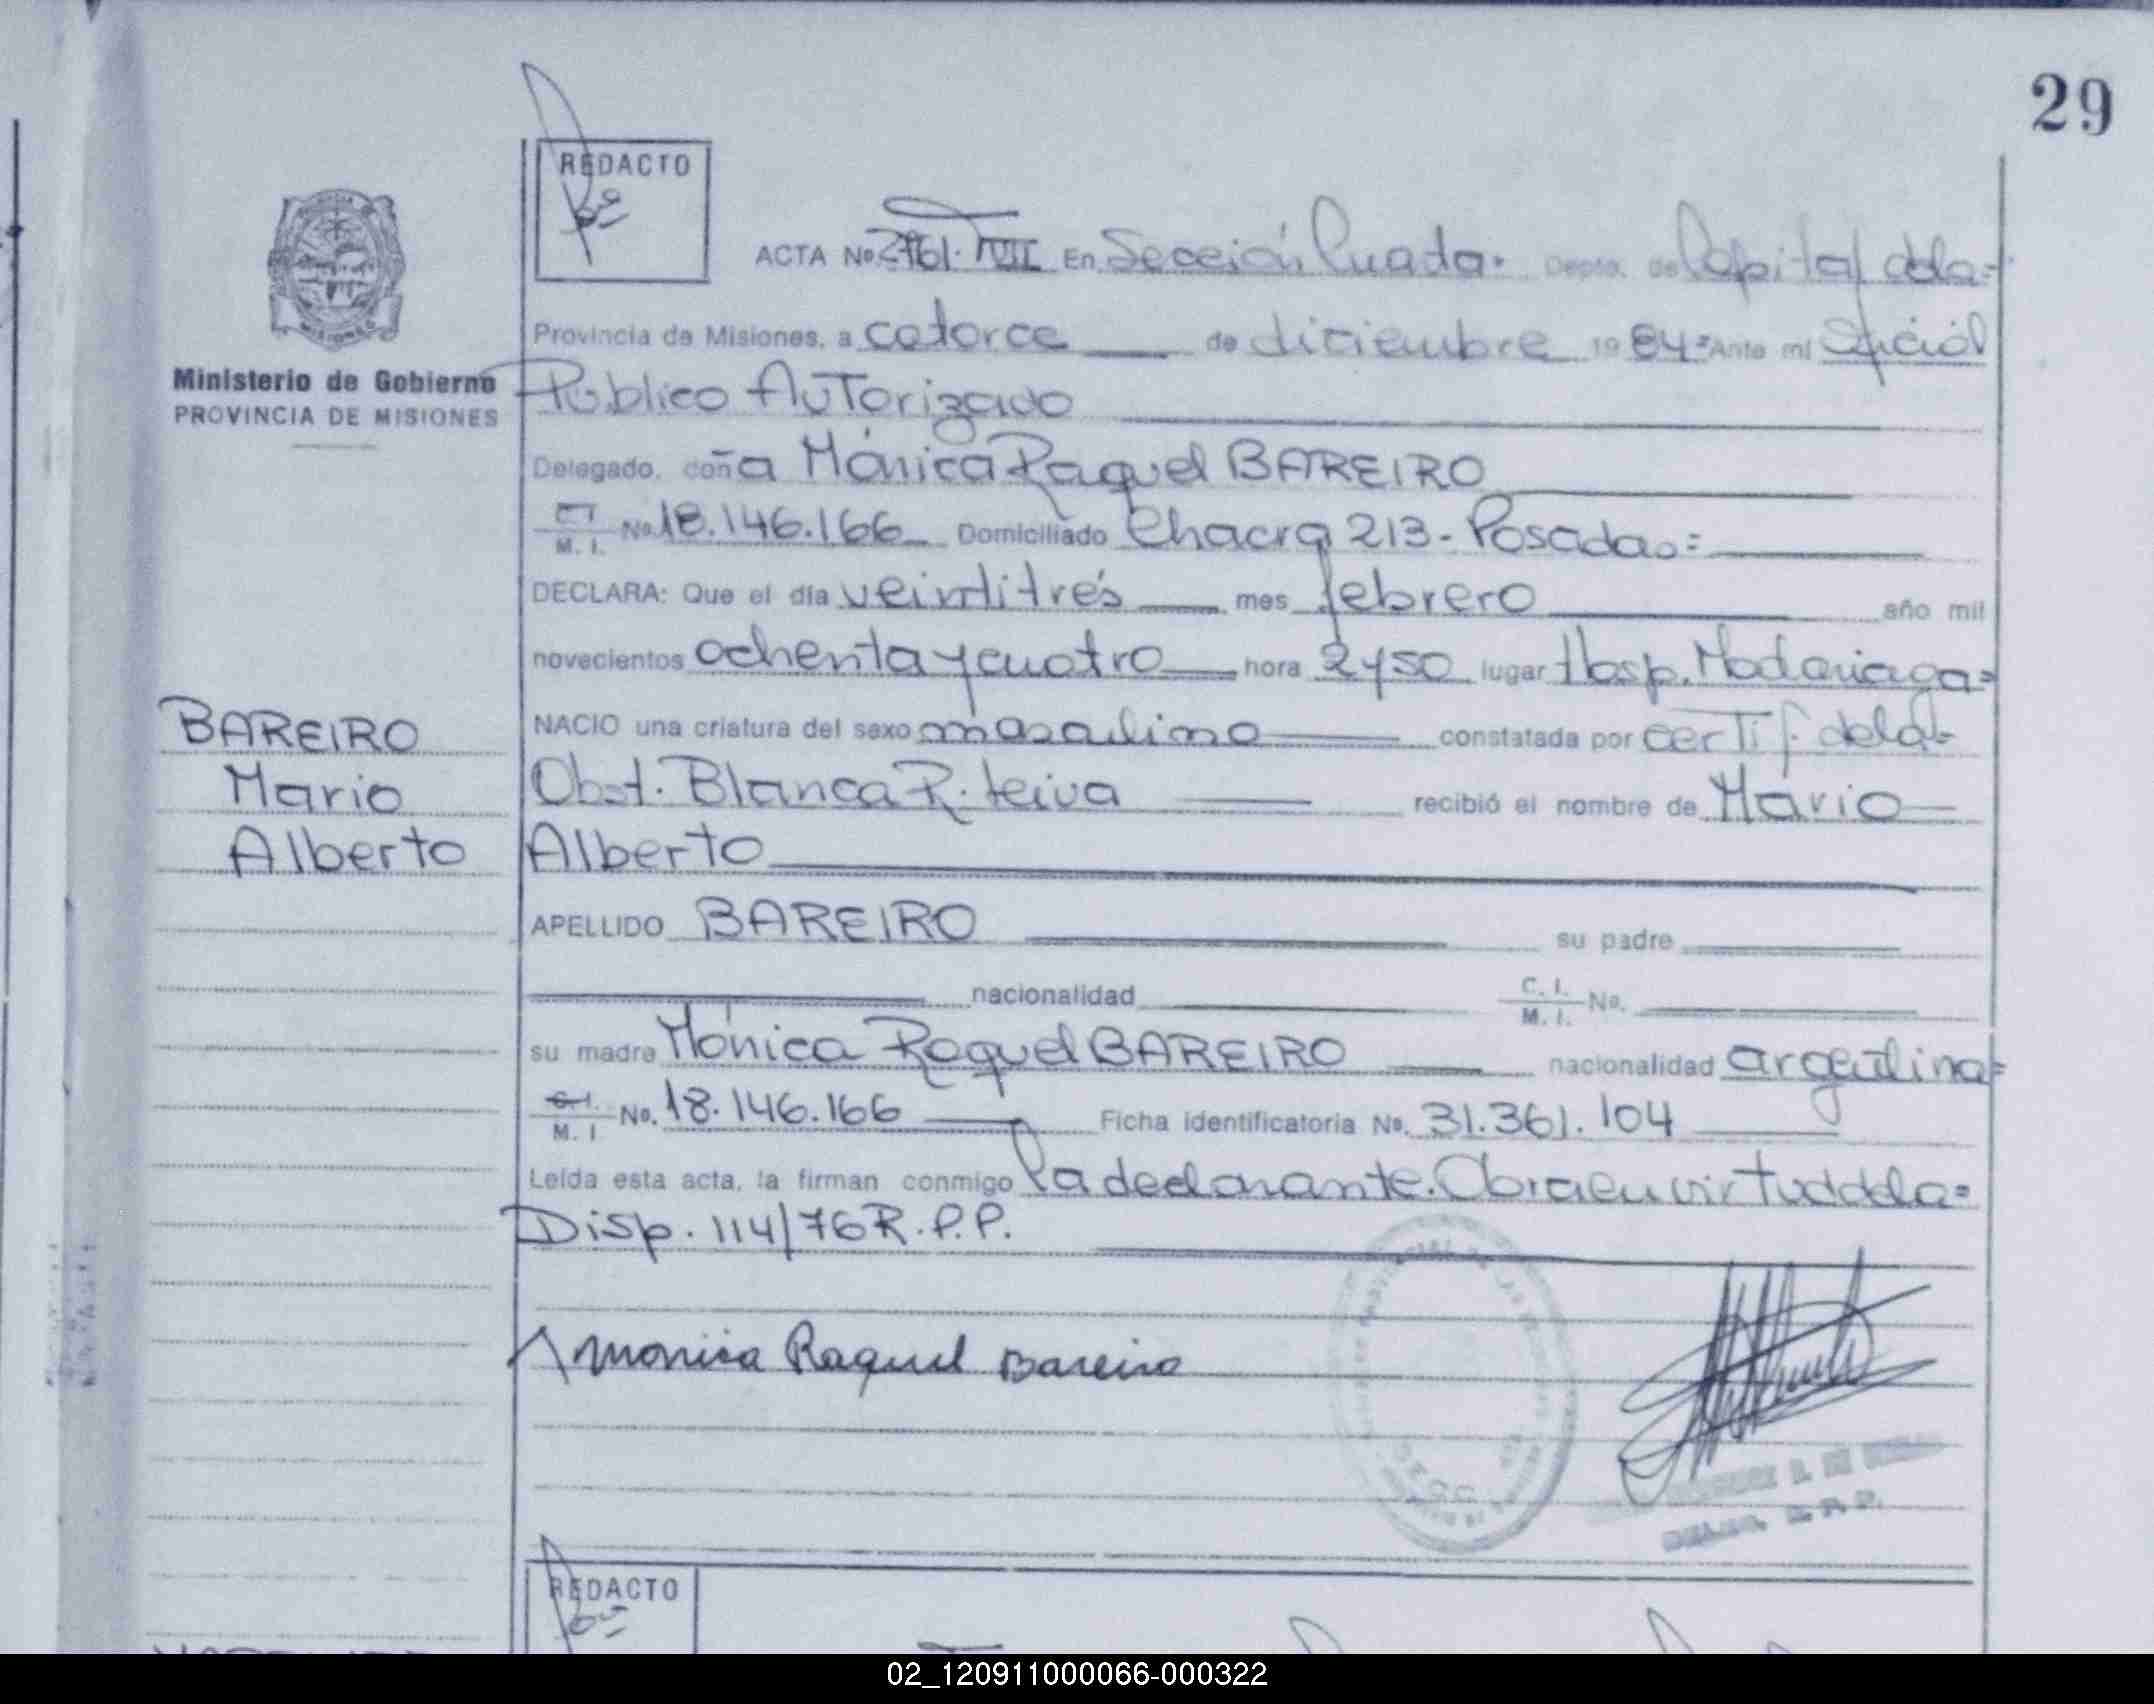 29
REDACTO
ACTA Nº 2761. T VII En Sección Cuarta. Depto. de Capital dela=
Provincia de Misiones, a catorce de diciembre 1984= Ante mí Oficial
Ministerio de Gobierno
PROVINCIA DE MISIONES
Público Autorizado
Delegado, doña Mónica Raquel BAREIRO
M. I. Nº 18.146.166 Domiciliado Chacra 213 - Posadas=
DECLARA: Que el día veintitrés mes febrero año mil
novecientos ochenta y cuatro hora 2 y 50 lugar Hosp. Madariaga=
BAREIRO
Mario
Alberto
NACIO una criatura del sexo masculino constatada por certif. dela
Obst. Blanca R. Leiva recibió el nombre de Mario
Alberto
APELLIDO BAREIRO su padre
nacionalidad C. I. M. I. Nº.
su madre Mónica Raquel BAREIRO nacionalidad argentina=
C.I. M. I. Nº. 18.146.166 Ficha identificatoria Nº. 31.361.104
Leída esta acta, la firman conmigo la declarante. Obra en virtud dela=
Disp. 114/76 R.P.P.
Monica Raquel Bareiro
REDACTO
02_120911000066-000322